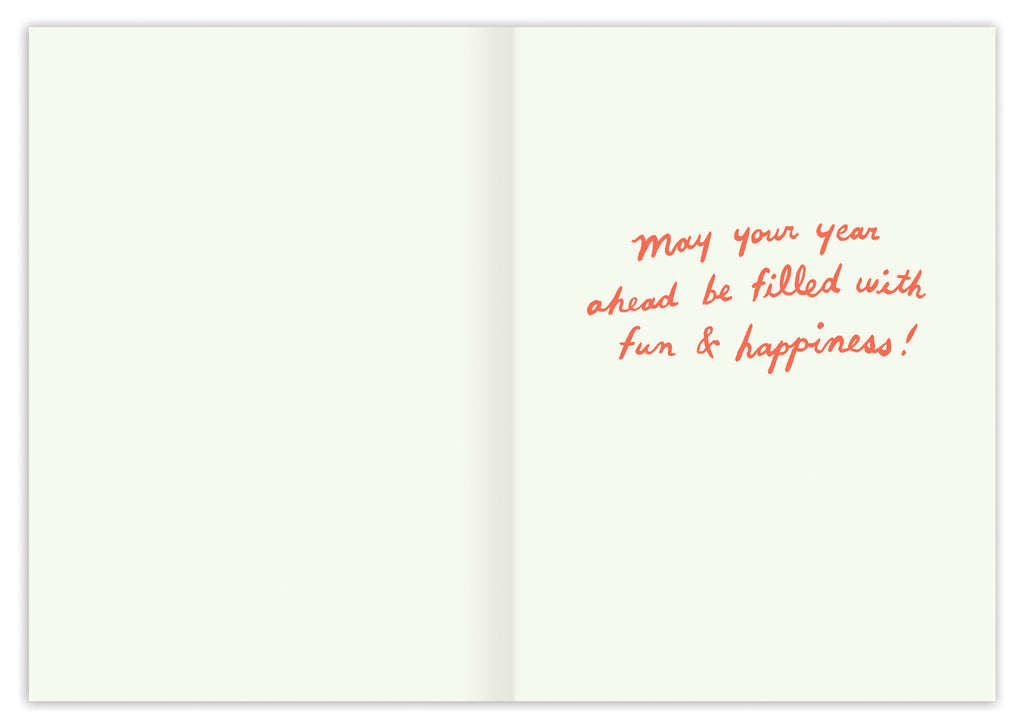 May your year
ahead be filled with
fun & happiness!